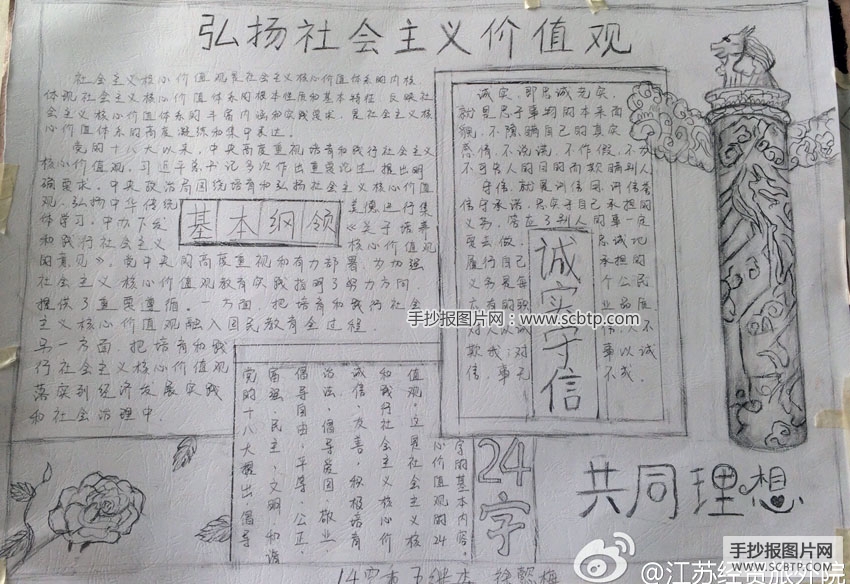 弘扬社会主义价值观
社会主义核心价值观是社会主义核心价值体系的内核,
体现社会主义核心价值体系的根本性质和基本特征,反映社
会主义核心价值体系的丰富内涵和实践要求,是社会主义核
心价值体系的高度凝练和集中表达。
党的十八大以来,中央高度重视培育和践行社会主义
核心价值观,习近平总书记多次作出重要论述、提出明
确要求。中央政治局围绕培育和弘扬社会主义核心价值
观、弘扬中华传统 美德进行集
体学习,中办下发 《关于培养
和践行社会主义 核心价值观
的意见》。党中央的高度重视和有力部署,为加强
社会主义核心价值观教育实践指明了努力方向,
提供了重要遵循。一方面,把培育和践行社会
主义核心价值观融入国民教育全过程,
另一方面,把培育和践
行社会主义核心价值观
落实到经济发展实践
和社会治理中。
基本纲领
诚实,即忠诚老实,
就是忠于事物的本来面
貌,不隐瞒自己的真实
感情,不说谎,不作假,不为
不可告人的目的而欺瞒别人
守信,就是讲信用,讲信誉,
信守承诺,忠实于自己承担的
义务,答应了别人的事一定
要去做。 忠诚地
履行自己 承担的
义务是每 个公民
应有的职 业品质
对人以诚信,人不
欺我;对 事以诚
信,事无 不成。
诚实守信
24字
字的基本内容。
心价值观的24
值观,这是社会主义核
和践行社会主义核心价
诚信、友善,积极培育
治法,倡导爱国、敬业、
倡导自由、平等、公正
富强、民主、文明、和谐
党的十八大提出倡导
共同理想
手抄报图片网:www.scbtp.com
@江苏经贸旅外院
手抄报图片网
www.scbtp.com